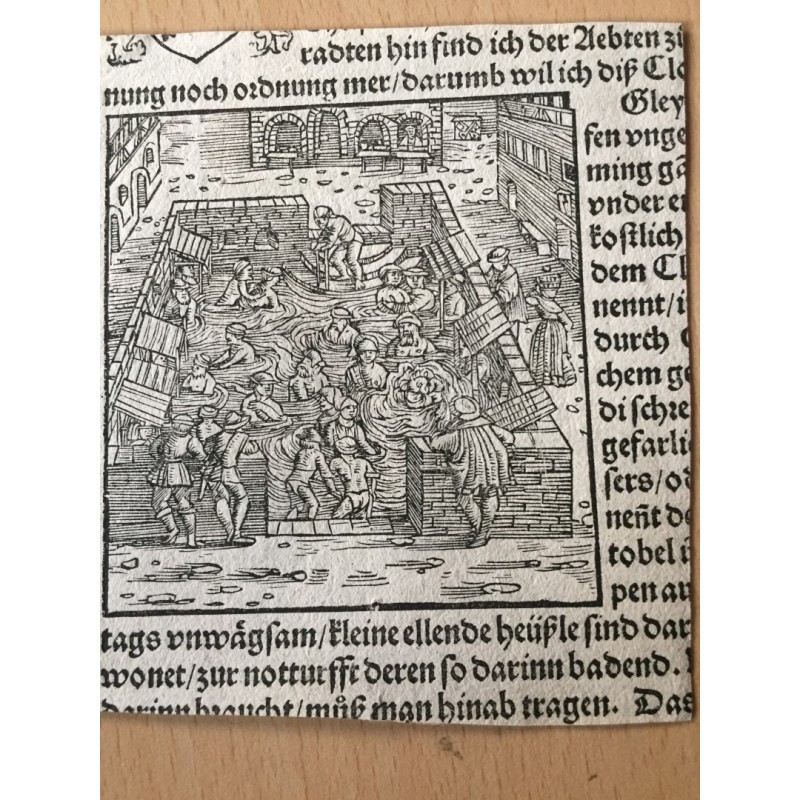 radten hin find ich der Aebten zů
nung noch ordnung mer/darumb wil ich diß Clo
Gley
fen vnge
ming gā
vnder er
kostlich
dem Cl
nennt/i
durch
chem ge
di schre
gefarli
sers/od
neñt de
tobel
pen au
tags vnwägsam/kleine ellende heüßle sind dar
wonet/zur notturfft deren so darinn badend.
darinn braucht/můß man hinab tragen. Das